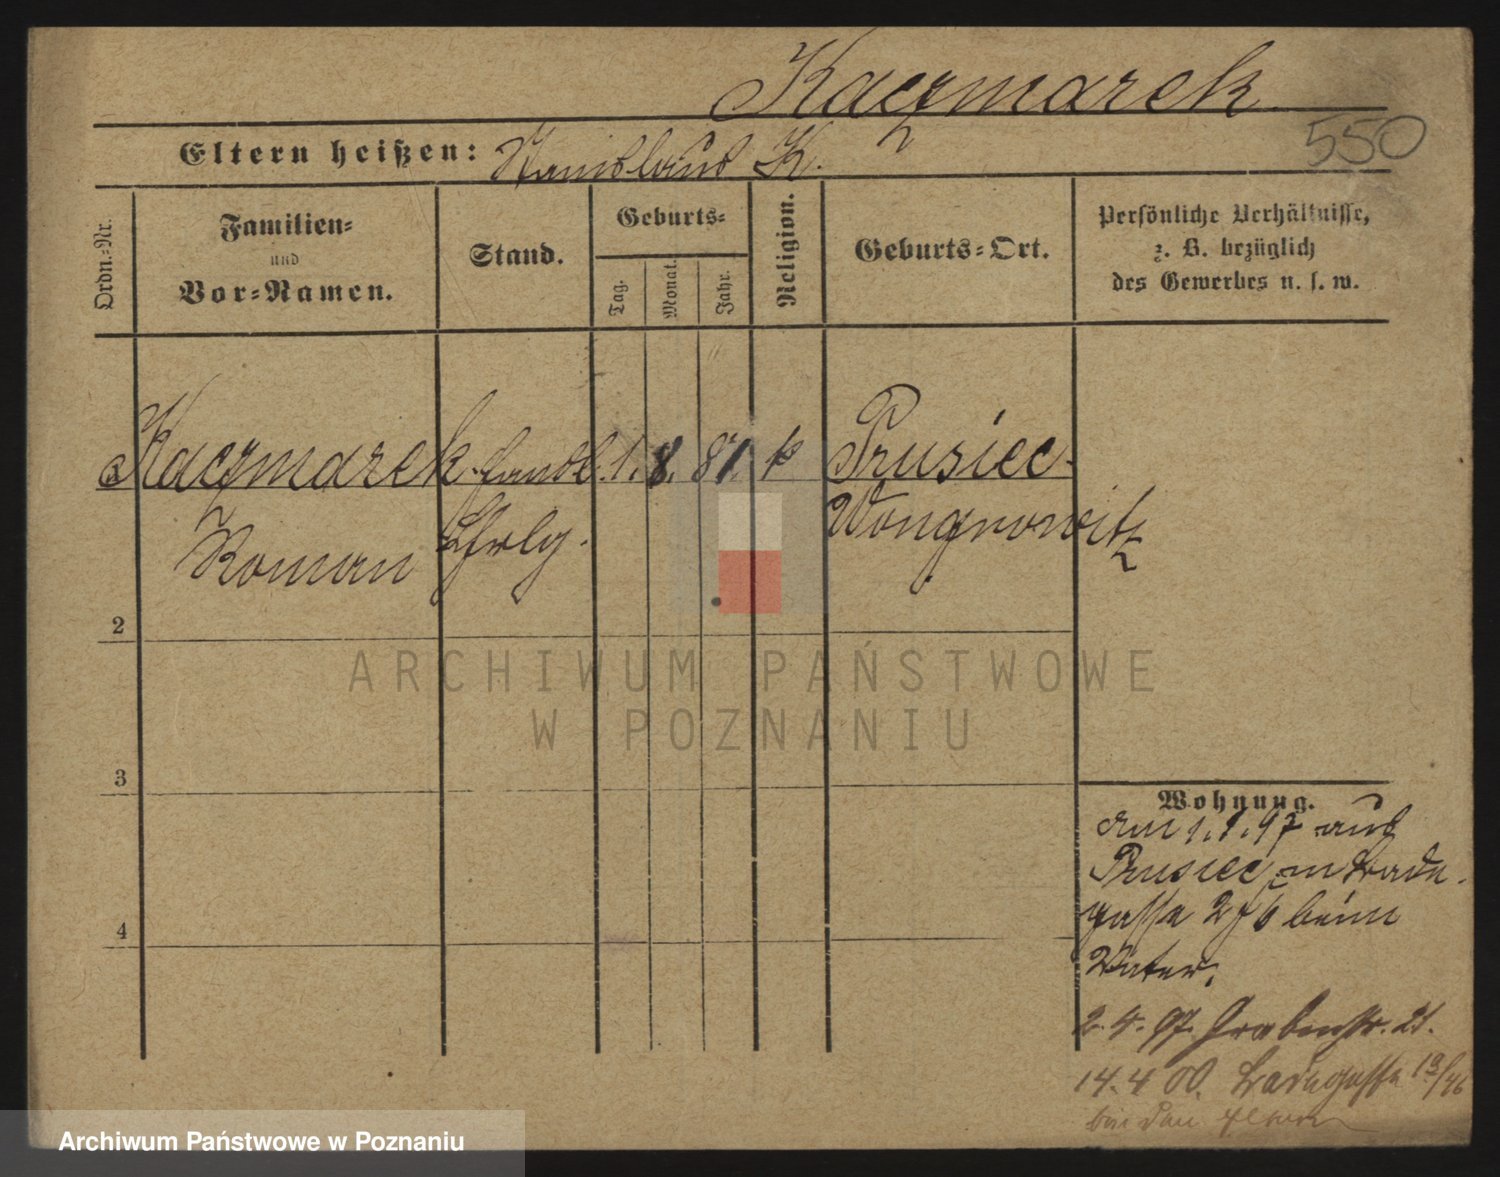 Kaczmarek
550
Eltern heißen: Stanislaus K.
Ordn.-Nr.
Familien-
und
Vor-Namen.
Stand.
Geburts-
Tag.
Monat.
Jahr.
Religion.
Geburts-Ort.
Persönliche Verhältnisse,
z. B. bezüglich
des Gewerbes u. s. w.
Kaczmarek 1. 8. 81. k Prusiec
Roman Lehrlg. Wongrowitz
2
3
4
Wohnung.
Am 1.1.97 aus
Prusiec
gasse beim
Vater.
2.4.97. Grabenstr. 21.
14.4.00. Badegasse
bei den Eltern
ARCHIWUM PAŃSTWOWE
W POZNANIU
Archiwum Państwowe w Poznaniu